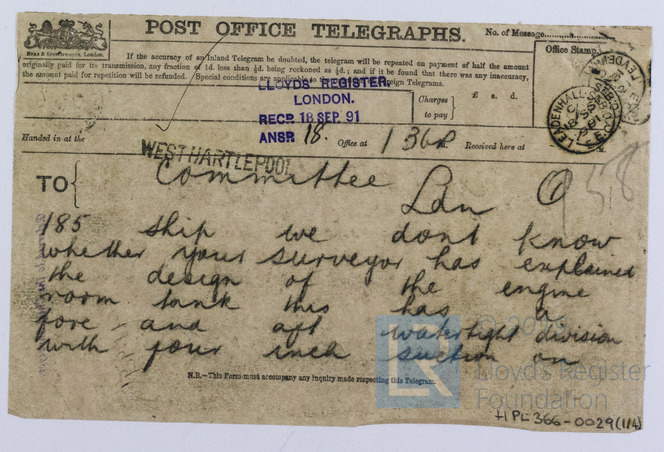 POST OFFICE TELEGRAPHS.
No. of Message
If the accuracy of an Inland Telegram be doubted, the telegram will be repeated on payment of half the amount
originally paid for its transmission, any fraction of 1d. less than ½d. being reckoned as ½d.; and if it be found that there was any inaccuracy,
the amount paid for repetition will be refunded. Special conditions are applicable to the Foreign Telegrams.
Office Stamp.
LLOYDS' REGISTER,
LONDON.
RECD 18 SEP. 91
ANSR 18.
Charges to pay
£ s. d.
LEADENHALL
Handed in at the
Office at
136
Received here at
WEST HARTLEPOOL
TO
Committee
Ldn
158
185 ship we dont know
whether your surveyor has explained
the design of the engine
room tank this has a
fore and aft watertight division
with four inch suction on
N.B.—This Form must accompany any inquiry made respecting this Telegram.
Lloyd's Register
Foundation
LR
HPL366-0029(1/4)